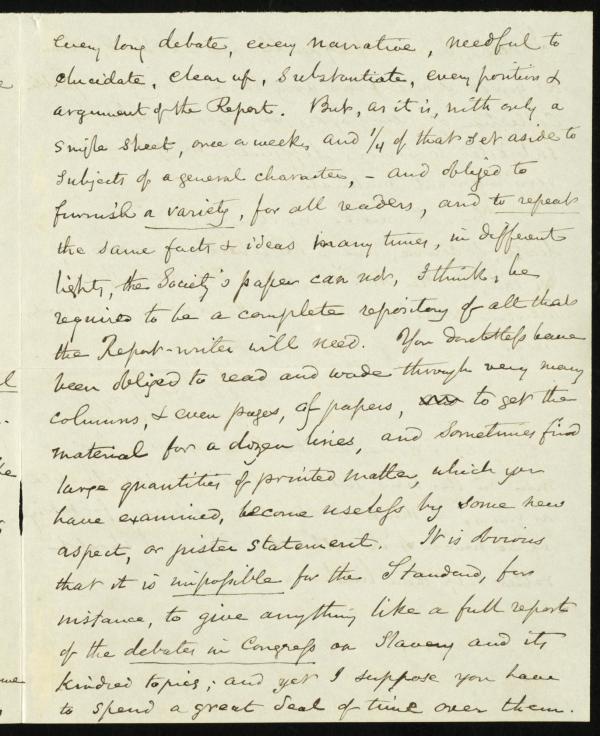 every long debate, every narrative, needful to
elucidate, clear up, substantiate, every position &
argument of the Report. But, as it is, with only a
single sheet, once a week, and 1/4 of that set aside to
subjects of a general character, – and obliged to
furnish a variety, for all readers, and to repeat
the same facts & ideas many times, in different
lights, the Society's paper can not, I think, be
required to be a complete repository of all that
the Report-writer will need. You doubtless have
been obliged to read and wade through very many
columns, & even pages, of papers, to get the
material for a dozen lines, and sometimes find
large quantities of printed matter, which you
have examined, become useless by some new
aspect, or juster statement. It is obvious
that it is impossible for the Standard, for
instance, to give anything like a full report
of the debates in Congress on Slavery and its
kindred topics; and yet I suppose you have
to spend a great deal of time over them.